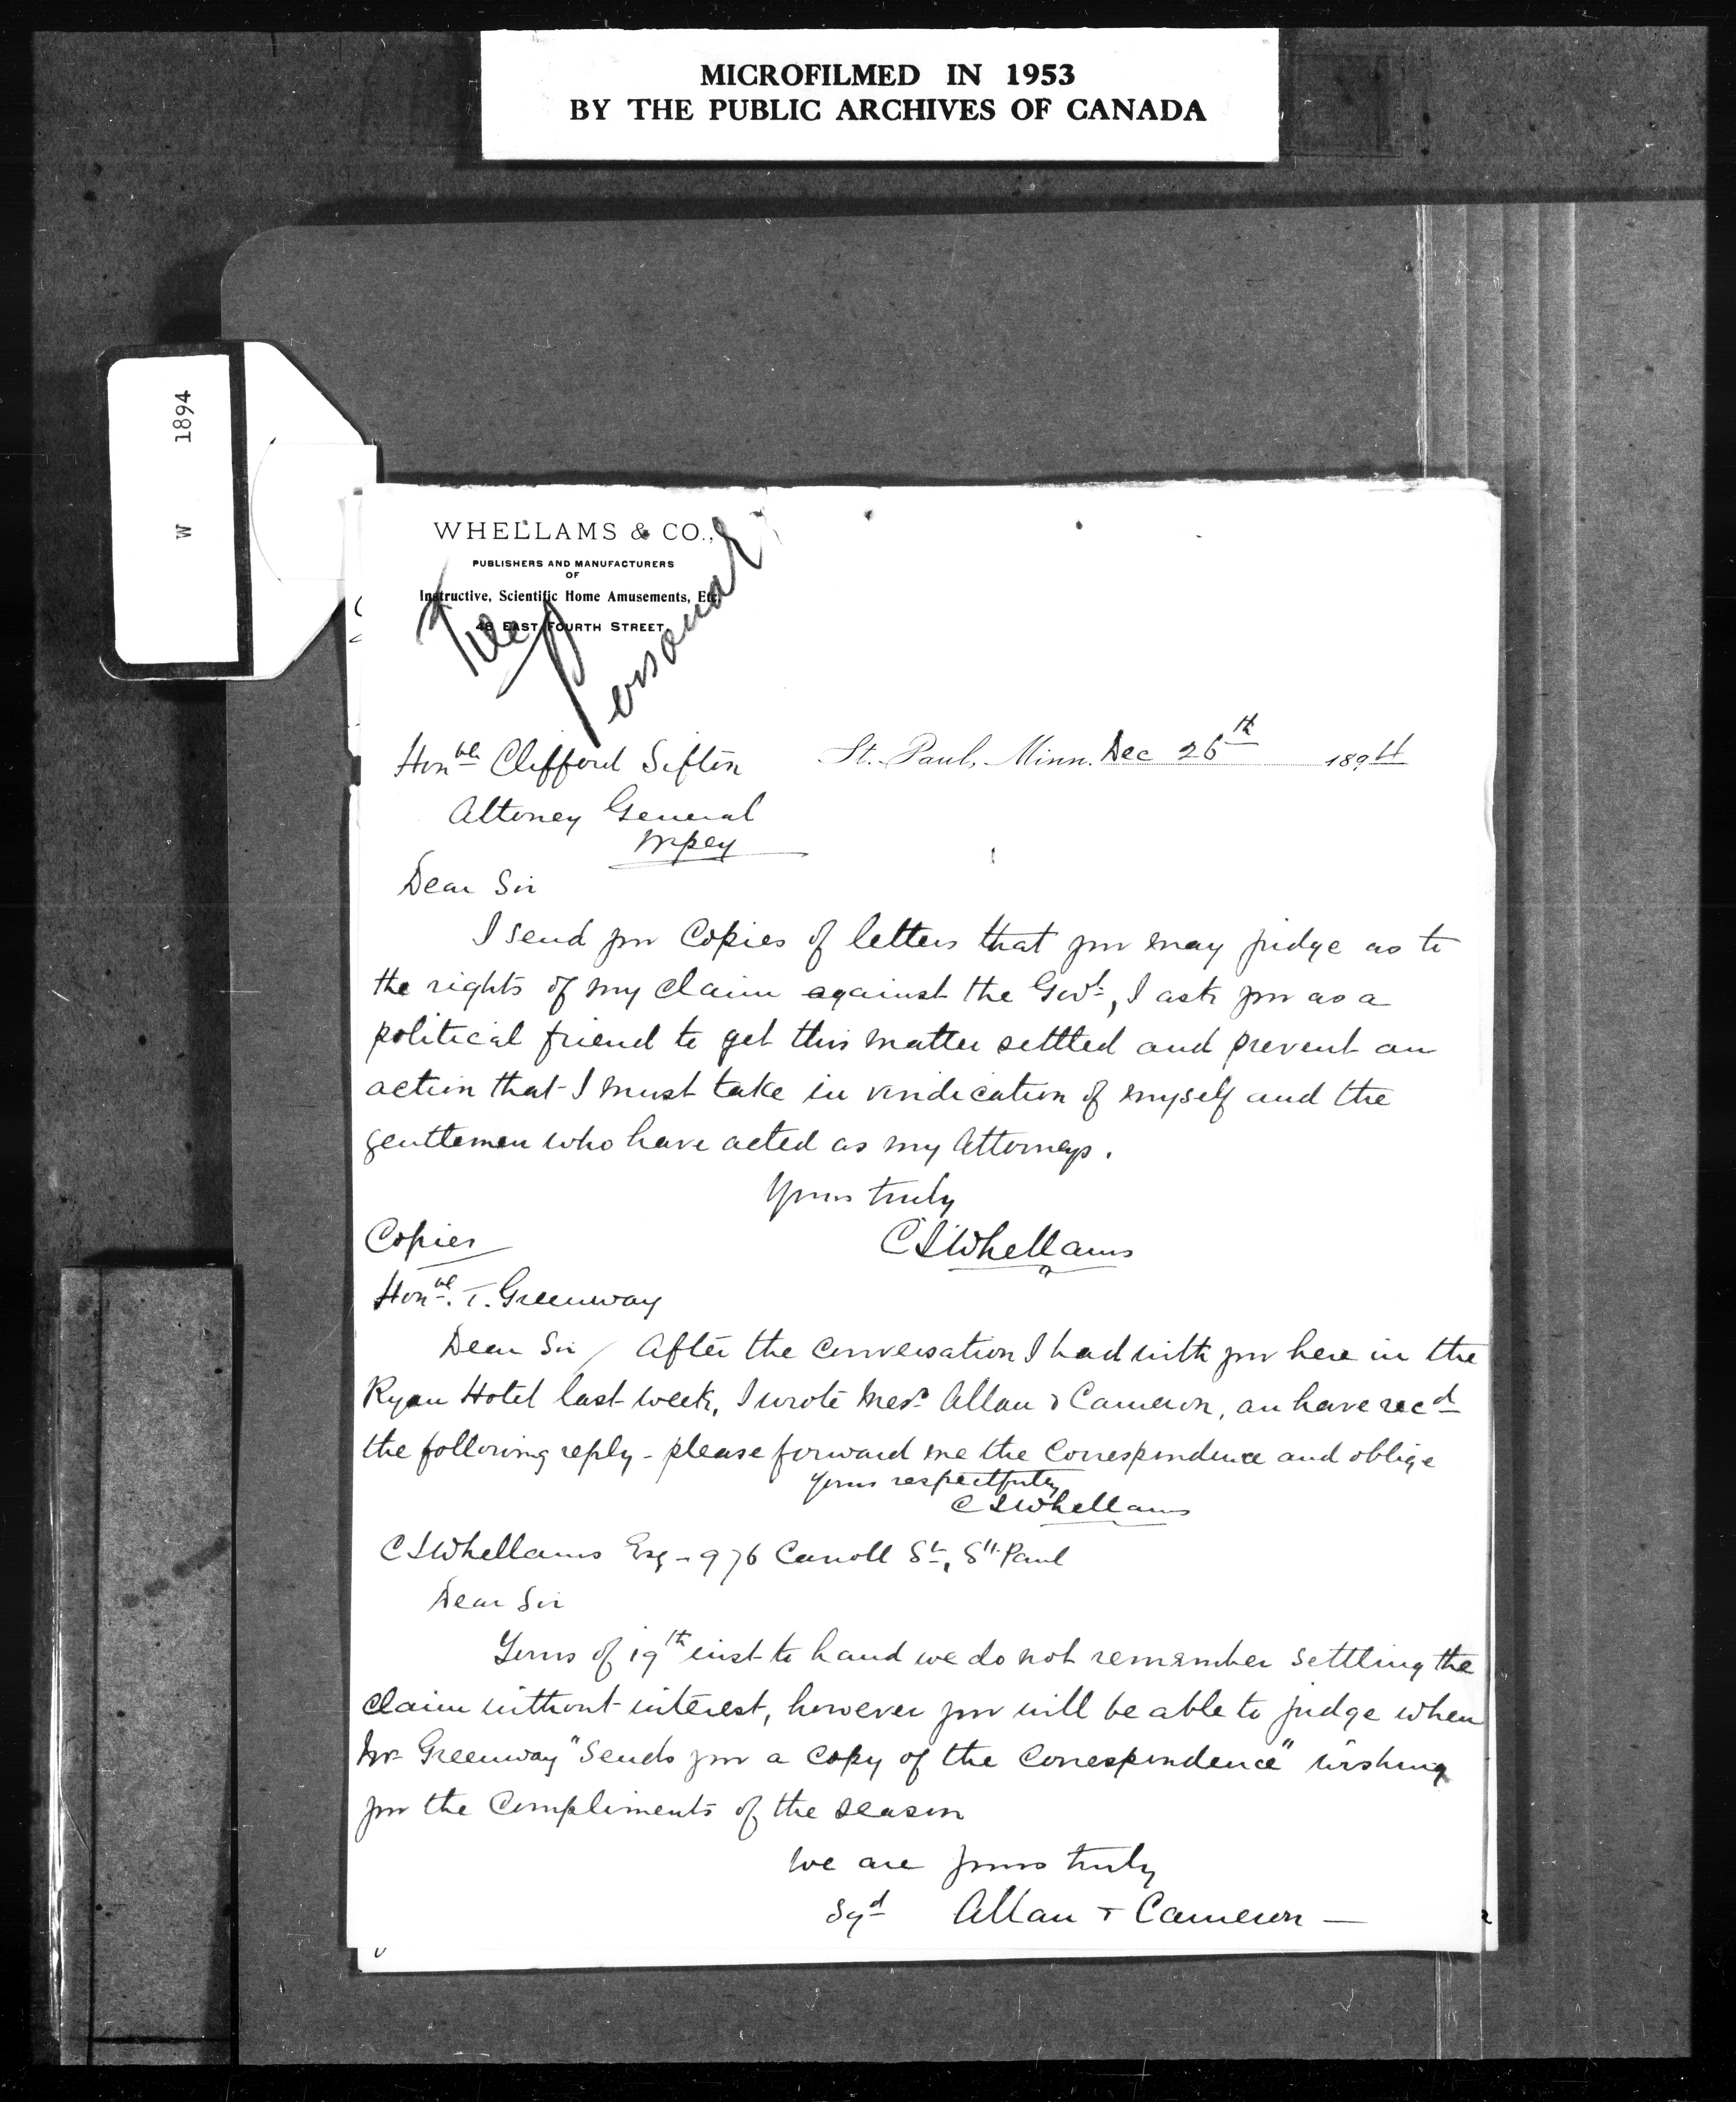 MICROFILMED IN 1953
BY THE PUBLIC ARCHIVES OF CANADA
W 1894
WHELLAMS & CO.,
PUBLISHERS AND MANUFACTURERS
OF
Instructive, Scientific Home Amusements, Etc.
48 EAST FOURTH STREET
File Personal
St. Paul, Minn. Dec 26th 1894
Honble Clifford Sifton
Attoney General
Wpeg
Dear Sir
I send you Copies of letters that you may judge as to
the rights of my claim against the Govt, I ask you as a
political friend to get this matter settled and prevent an
action that I must take in vindication of myself and the
gentlemen who have acted as my Attorneys.
Yours truly
C S Whellams
Copies
Honble. T. Greenway
Dear Sir / After the conversation I had with you here in the
Ryan Hotel last week, I wrote Mesrs Allan & Cameron, an have recd
the following reply - please forward me the Correspondence and oblige
Yours respectfully
C S Whellams
C S Whellams Esq - 976 Carroll St, St. Paul
Dear Sir
Yours of 19th inst to hand we do not remember settling the
claim without interest, however you will be able to judge when
Mr Greenway "Sends you a copy of the Correspondence" wishing
you the Compliments of the season
We are yours truly
Sgd Allan & Cameron —